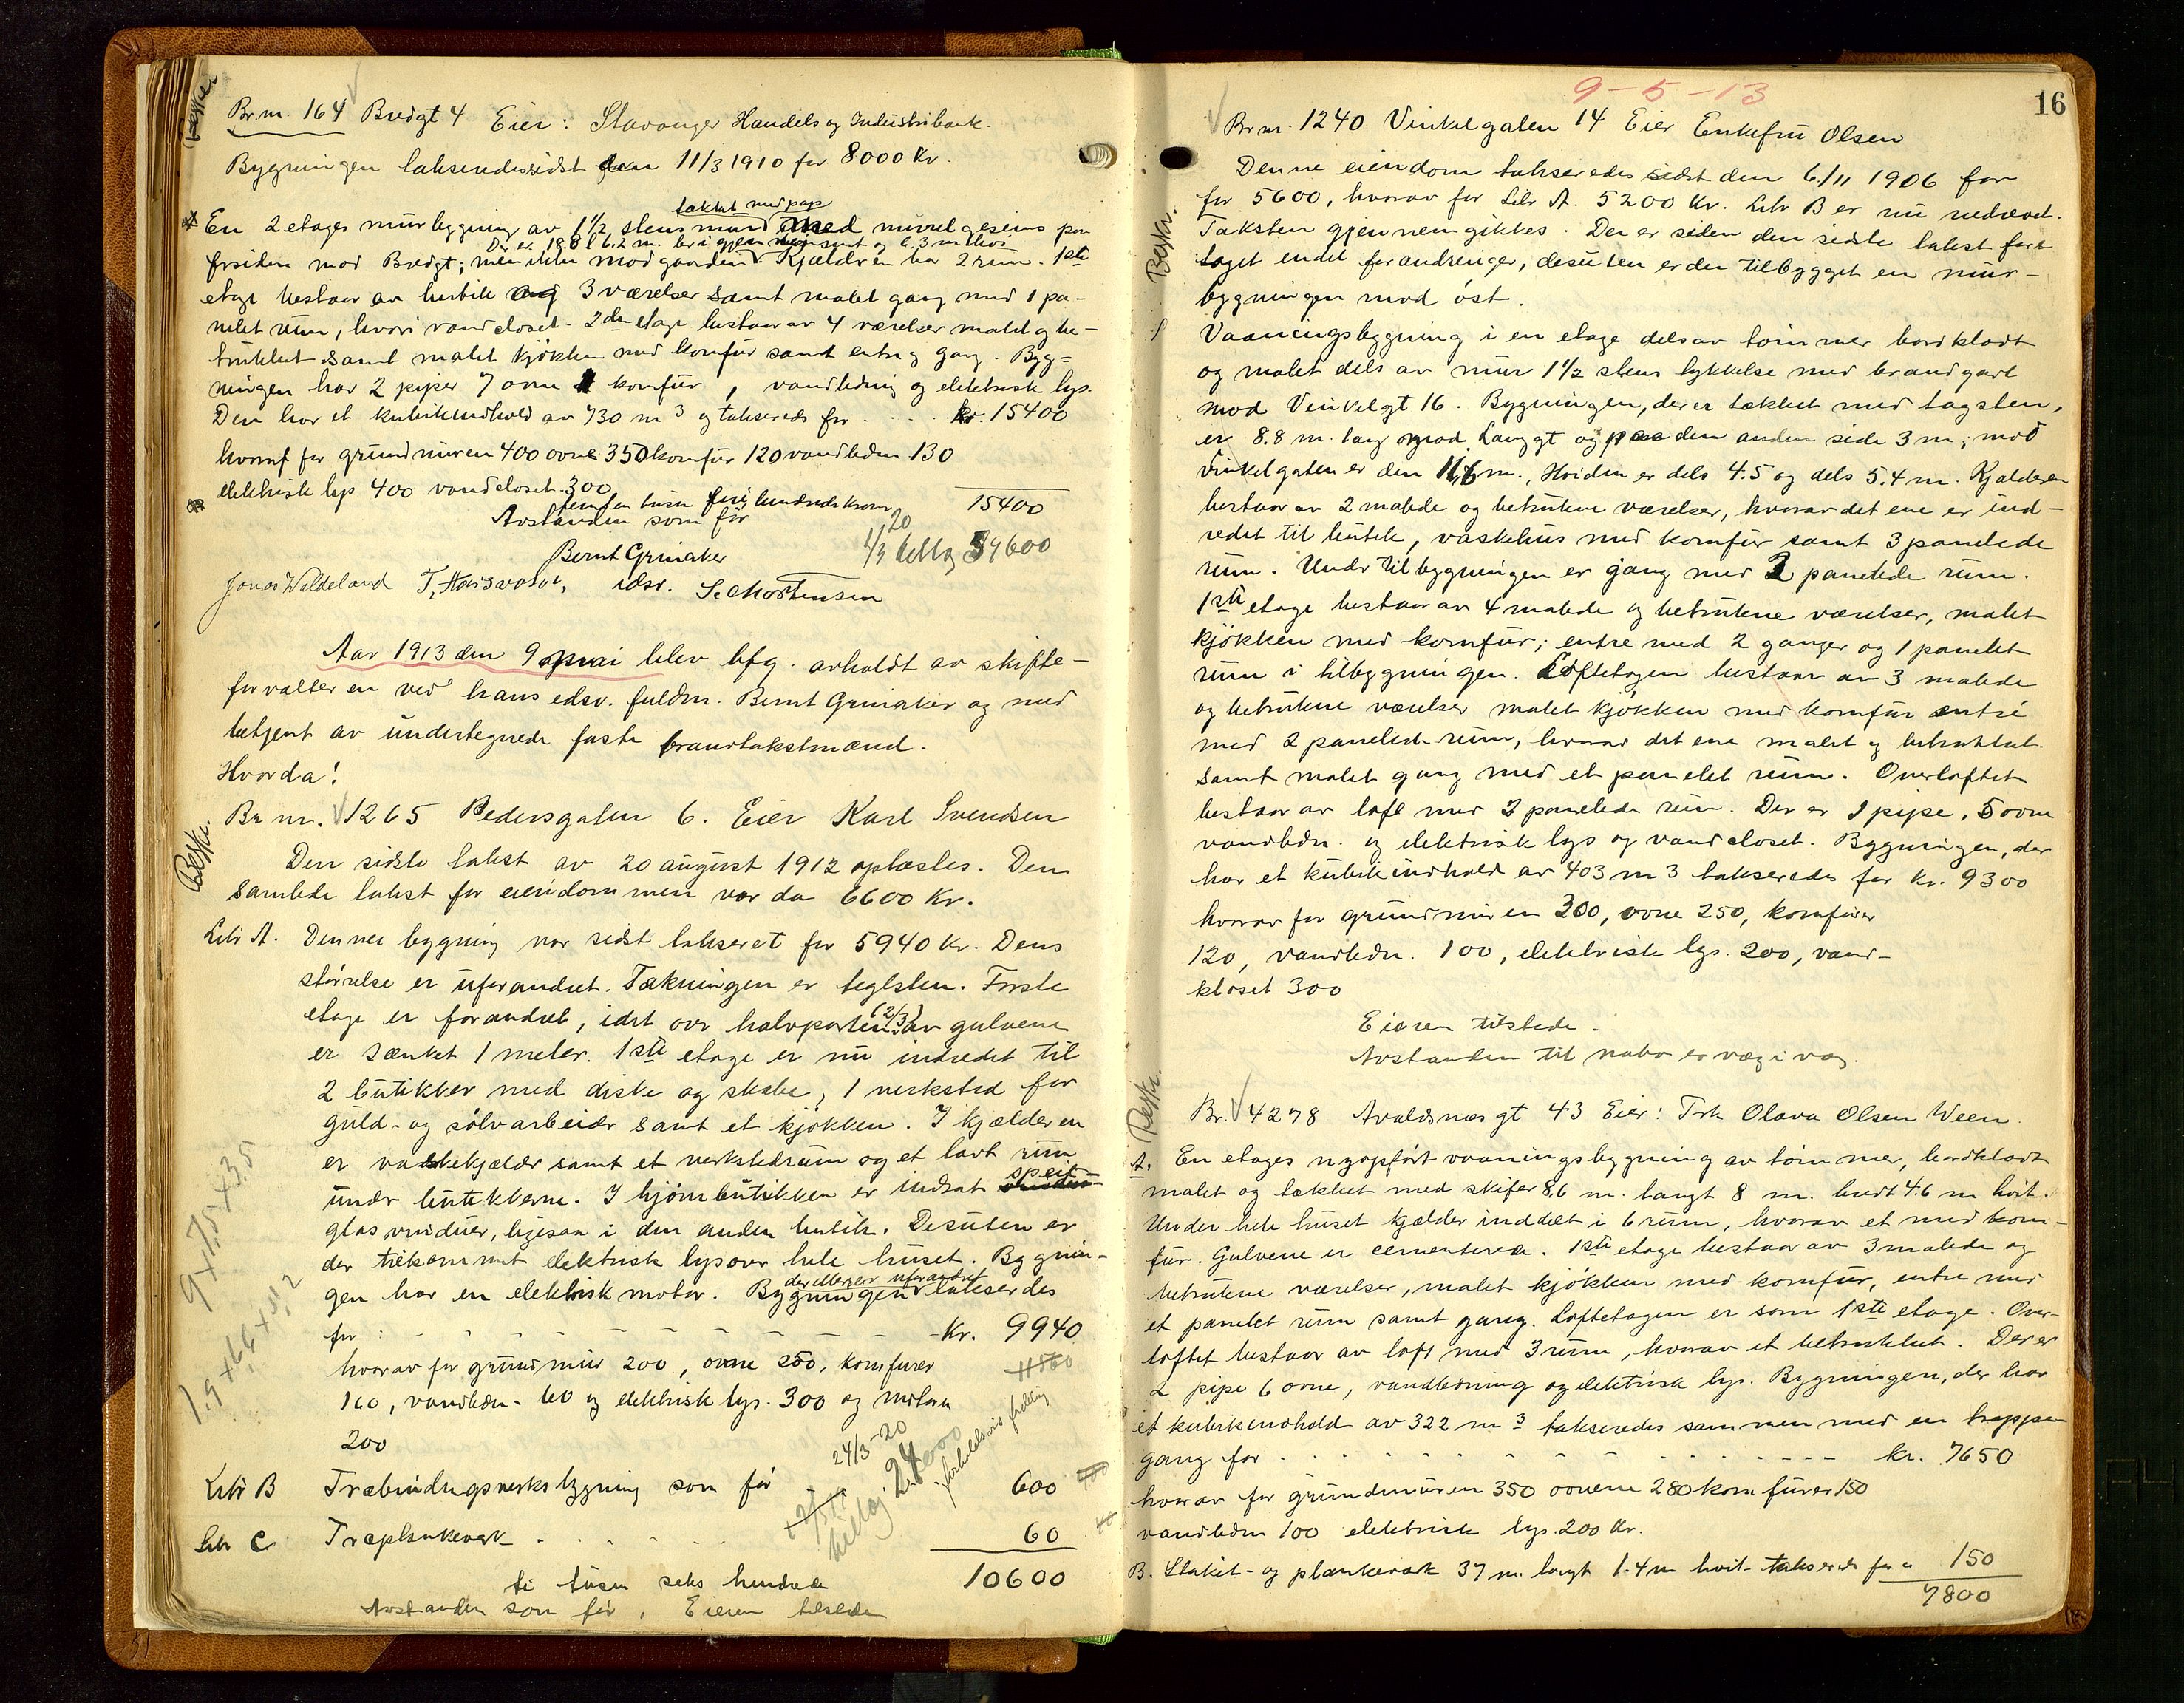 Beskr.
Br.nr. 164 Bredgt 4 Eier: Stavanger Handels og Industribank.
Bygningen takseredes sidst den 11/3 1910 for 8000 Kr.
tækket med pap
En 2 etages murbygning av 1½ stens mur med muret gesims paa
Den er 18.8 l 6.2 m. br. i gjennemsnit og 6.3 m høi
forsiden mod Bredgt; men ikke mod gaarden. Kjælderen har 2 rum. 1ste
etage bestaar av butik og 3 værelser samt malet gang med 1 pa-
nelet rum, hvori vandcloset. 2den etage bestaar av 4 værelser malet og be-
trukket samt malet kjøkken med komfur samt entre og gang. Byg=
ningen har 2 piper 7 ovne 1 komfur, vandledning og elektrisk lys.
Den har et kubikindhold av 730 m3 og takseredes for - - kr. 15400
hvoraf for grundmuren 400 ovne 350 komfur 120 vandledn 130
elektrisk lys 400 vandcloset 300
femten tusen fire hundrede kroner 15400
Avstanden som før
1/3 20 tillæg 39600
Bernt Grinaker
Jonas Waldeland T. edsv. S. Mortensen
Aar 1913 den 9 mai blev bfg. avholdt av skifte-
forvalteren ved hans edsv. fuldm. Bernt Grinaker og med
betjent av undertegnede faste brandtakstmænd.
Hvorda!
Beskr.
Br nr. 1265 Pedersgaten 6. Eier Karl Svendsen
Den sidste takst av 20 august 1912 oplæstes. Den
samlede takst for eiendommen var da 6600 Kr.
Litr A. Denne bygning var sidst takseret for 5940 Kr. Dens
størrelse er uforandret. Tækningen er teglsten. Første
etage er forandret, idet over halvparten (2/3) av gulvene
er sænket 1 meter. 1ste etage er nu indredet til
2 butikker med diske og skabe, 1 verksted for
guld- og sølvarbeider samt et kjøkken. I kjælderen
er vaskekjælder samt et verkstedrum og et lavt rum
under butikkerne. I hjørnebutikken er indsat speil-
glas vinduer, ligesaa i den anden butik. Desuten er
der tilkommet elektrisk lys over hele huset. Bygnin-
gen har en elektrisk motor. Bygningen der ellers er uforandret takseredes
for - - - - - - - - - Kr. 9940
hvorav for grundmur 200, ovne 250, komfurer 11560
160, vandledn. 60 og elektrisk lys. 300 og motoren
200
9 x 7.5 x 3.5
1.9 x 6.6 x 5.2
24/3-20
tillæg 24000
forholdsvis fordeling
Litr B Træbindingsverksbygning som før 600
Litr C Træplankeverk - - - - 60
ti tusen seks hundrede 10600
Avstanden som før. Eieren tilstede
9-5-13
16
Br nr. 1240 Vinkelgaten 14 Eier Enkefru Olsen
Beskr.
Denne eiendom takseredes sidst den 6/11 1906 for
for 5600, hvorav for Litr A. 5200 Kr. Litr B er nu nedrevet.
Taksten gjennemgikkes. Der er siden den sidste takst fore
taget endel forandringer, desuten er der tilbygget en mur-
bygningen mod øst.
Vaaningsbygning i en etage dels av tømmer bordklædt
og malet dels av mur 1½ stens tykkelse med brandgavl
mod Vinkelgt 16. Bygningen, der er tækket med tagsten,
er 8.8 m. lang mod Langgt og paa den anden side 3 m; mod
Vinkelgaten er den 11,6 m., Høiden er dels 4.5 og dels 5.4 m. Kjælderen
bestaar av 2 malede og betrukne værelser, hvorav det ene er ind-
redet til butik, vaskehus med komfur samt 3 panelede
rum. Under tilbygningen er gang med 2 panelede rum.
1ste etage bestaar av 4 malede og betrukne værelser, malet
kjøkken med komfur; entre med 2 ganger og 1 panelet
rum i tilbygningen. Loftetagen bestaar av 3 malede
og betrukne værelser malet kjøkken med komfur entré
med 2 panelede rum, hvorav det ene malet og betrukket
samt malet gang med et panelet rum. Overloftet
bestaar av loft med 2 panelede rum. Der er 1 pipe, 5 ovne
vandledn. og elektrisk lys og vandcloset. Bygningen, der
har et kubikindhold av 403 m3 takseredes for Kr. 9300
hvorav for grundmuren 300, ovne 250, komfurer
120, vandledn. 100, elektrisk lys. 200, vand-
kloset 300
Eieren tilstede.
Avstanden til nabo er væg i væg.
Beskr.
Br. 4278 Avaldsnæsgt 43 Eier: Frk Olava Olsen Ween.
A. En etages nyopført vaaningsbygning av tømmer, bordklædt
malet og tækket med skifer 8,6 m. langt 8 m. bredt 4.6 m høit.
Under hele huset kjælder inddelt i 6 rum, hvorav et med kom-
fur. Gulvene er cementerede. 1ste etage bestaar av 3 malede og
betrukne værelser, malet kjøkken med komfur, entre med
et panelet rum samt gang. Loftetagen er som 1ste etage. Over-
loftet bestaar av loft med 3 rum, hvorav et betrukket. Der er
2 pipe 6 ovne, vandledning og elektrisk lys. Bygningen, der har
et kubikindhold av 322 m3 takseredes sammen med en trappe
gang for - - - - - - - - kr. 7650
hvorav for grundmuren 350 ovnene 280 komfurer 150
vandledn 100 elektrisk lys. 200 Kr.
B. Stakit- og plankeverk 37 m. langt 1.4 m høit takseredes for 150
7800